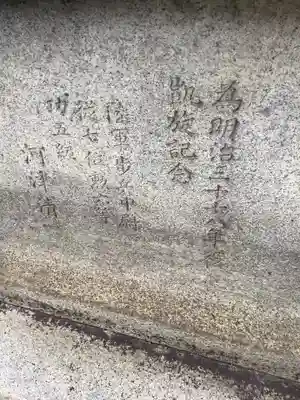 為明治三十七八年役
凱旋記念
陸軍歩兵中尉
従七位勲六等
功五級
河津